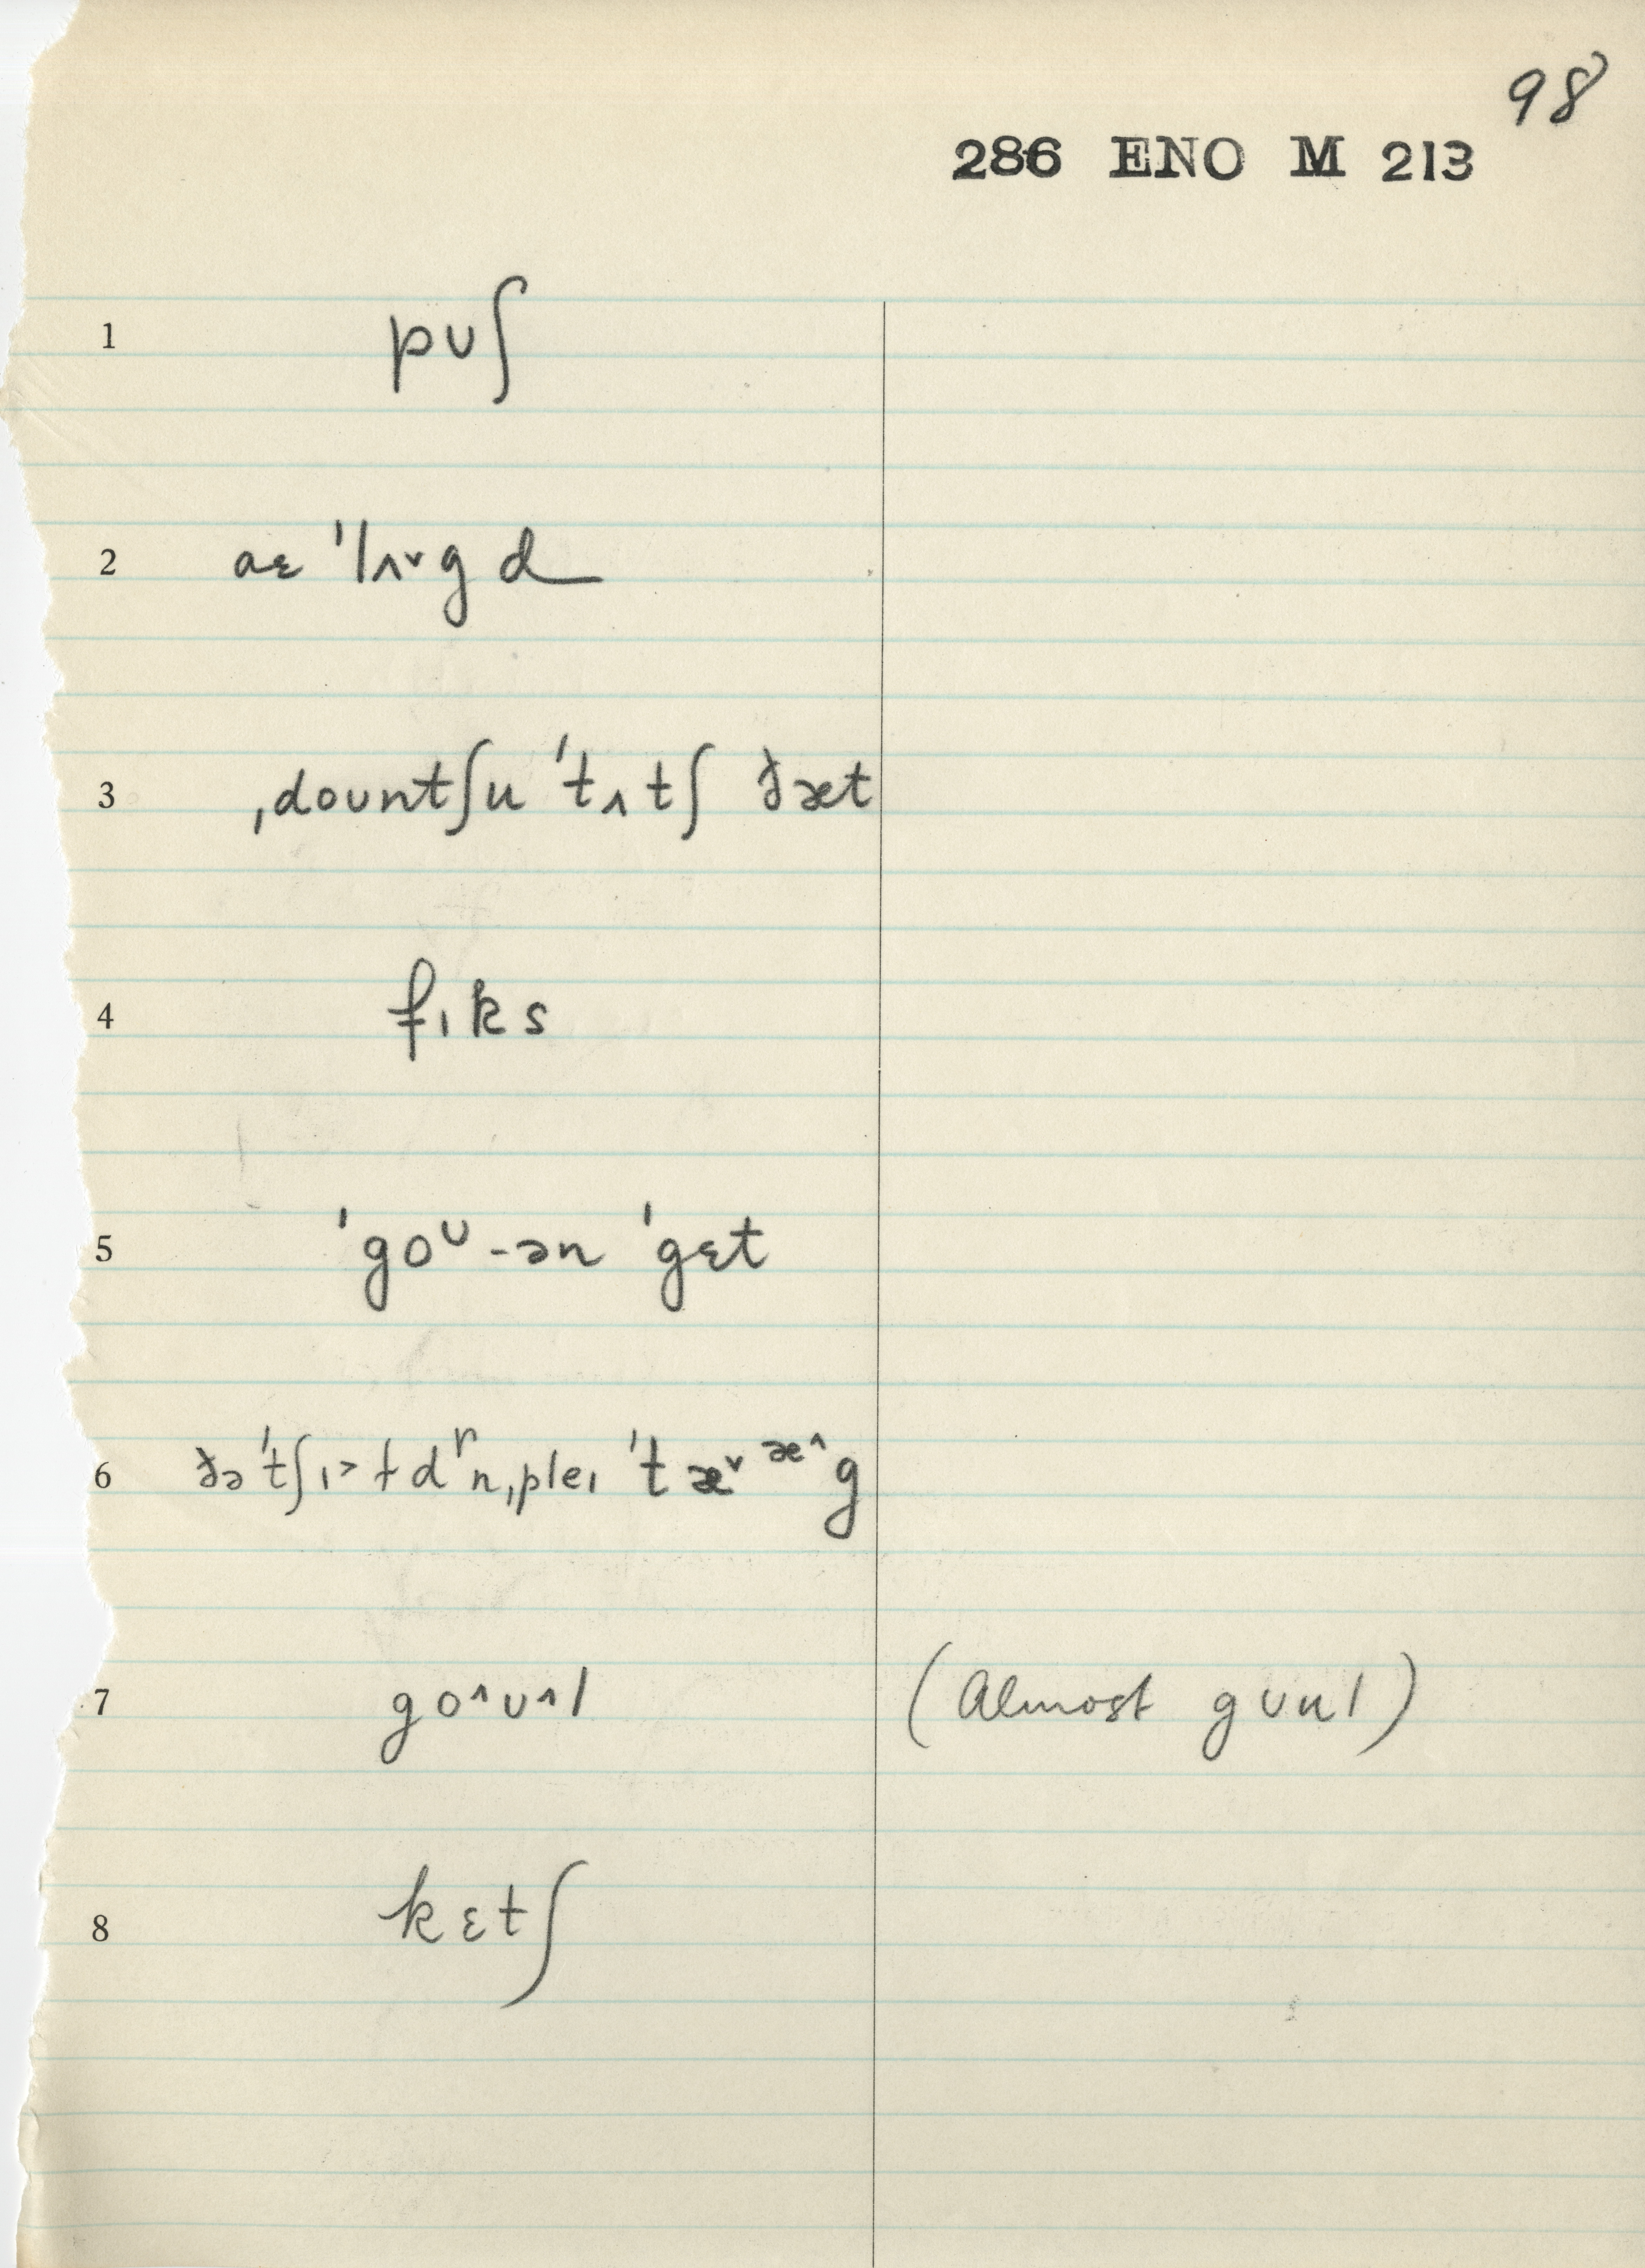 98
286 ENO M 213
1 pʊʃ
2 aɛ ˈlʌ˅gd
3 ˌdoʊntʃu ˈtʌtʃ ðæt
4 fɪks
5 ˈgoᶷ-ən ˈgɛt
6 ðə ˈtʃɪ˃ɫdʳn ˌpleɪ ˈtæ˅æ˄g
7 go˄ʊ˄l (Almost gʊul)
8 kɛtʃ